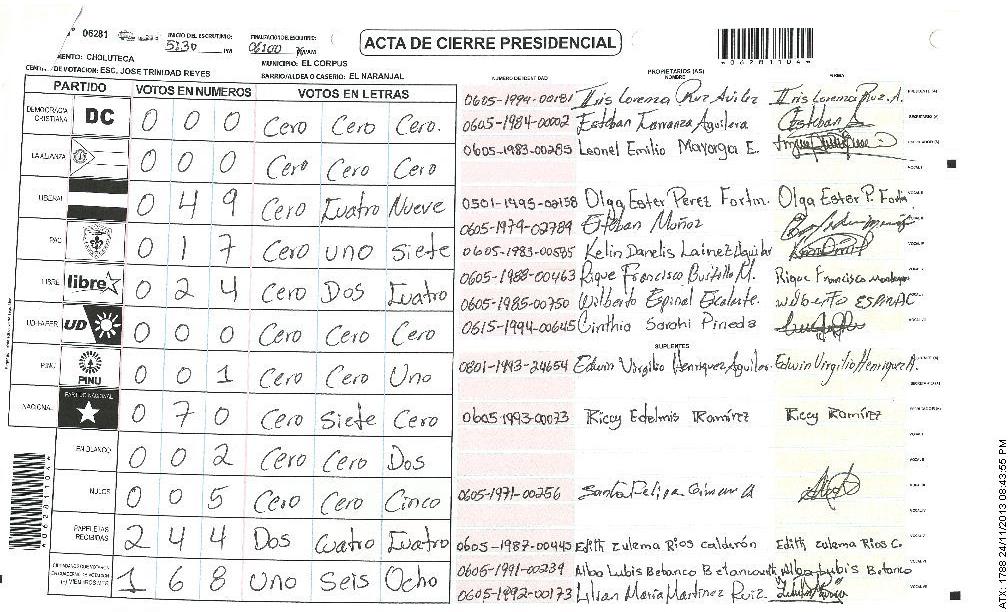 06281 INICIO DEL ESCRUTINIO: 5:30 PM FINALIZACION DE ESCRUTINIO: 06:00 ACTA DE CIERRE PRESIDENCIAL
MENTO: CHOLUTECA MUNICIPIO: EL CORPUS
DE VOTACION: ESC. JOSE TRINIDAD REYES BARRIO/ALDEA O CASERIO: EL NARANJAL
PARTIDO VOTOS EN NUMEROS VOTOS EN LETRAS
DEMOCRACIA CRISTIANA DC 0 0 0 Cero Cero Cero.
LA ALIANZA 0 0 0 Cero Cero Cero
LIBERAL 0 4 9 Cero Cuatro Nueve
PAC 0 1 7 Cero uno Siete
LIBRE libre 0 2 4 Cero Dos Cuatro
UD-FAPER UD 0 0 0 Cero Cero Cero
PINU PINU 0 0 1 Cero Cero Uno
NACIONAL PARTIDO NACIONAL 0 7 0 Cero Siete Cero
EN BLANCO 0 0 2 Cero Cero Dos
NULOS 0 0 5 Cero Cero Cinco
PAPELETAS RECIBIDAS 2 4 4 Dos Cuatro Cuatro
1 6 8 Uno Seis Ocho
NUMERO DE IDENTIDAD PROPIETARIOS (AS) NOMBRE FIRMA
0605-1994-00181 Iris Lorenza Ruz Avilez Iris Lorenza Ruz. A.
0605-1984-00002 Esteban Carranza Aguilera Esteban
0605-1983-00285 Leonel Emilio Mayorga E.
0501-1495-02158 Olga Ester Perez Fortin. Olga Ester P. Fortin
0605-1979-02789 Esteban Muñoz
0605-1983-00585 Kelin Danelis Lainez Aguilar
0605-1988-00463 Rique Francisco M. Rique Francisco
0605-1985-00750 Wilberto Espinal Escalante. Wilberto ESPINAL
0615-1994-00645 Cinthia Sarahi Pineda
SUPLENTES
0801-1993-24654 Edwin Virgilio Henriquez Aguilar Edwin Virgilio Henriquez A.
0605-1993-00073 Riccy Edelmis Ramírez Riccy Ramírez
0605-1971-00256 Santa Felipa
0605-1987-00445 Edith Zulema Rios calderón Edith Zulema Rios C.
0605-1991-00239 Alba Lubis Betanco Betancourth Alba Lubis Betanco
0605-1992-00173 Lilian María Martinez Ruiz.